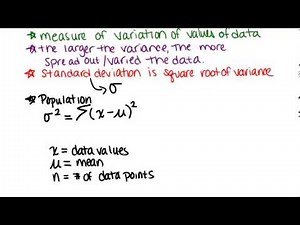 * measure of variation of values of data
* the larger the variance, the more
spread out/varied the data.
* Standard deviation is square root of variance
σ
* Population
σ² = Σ(x-μ)²
x = data values
μ = mean
n = # of data points